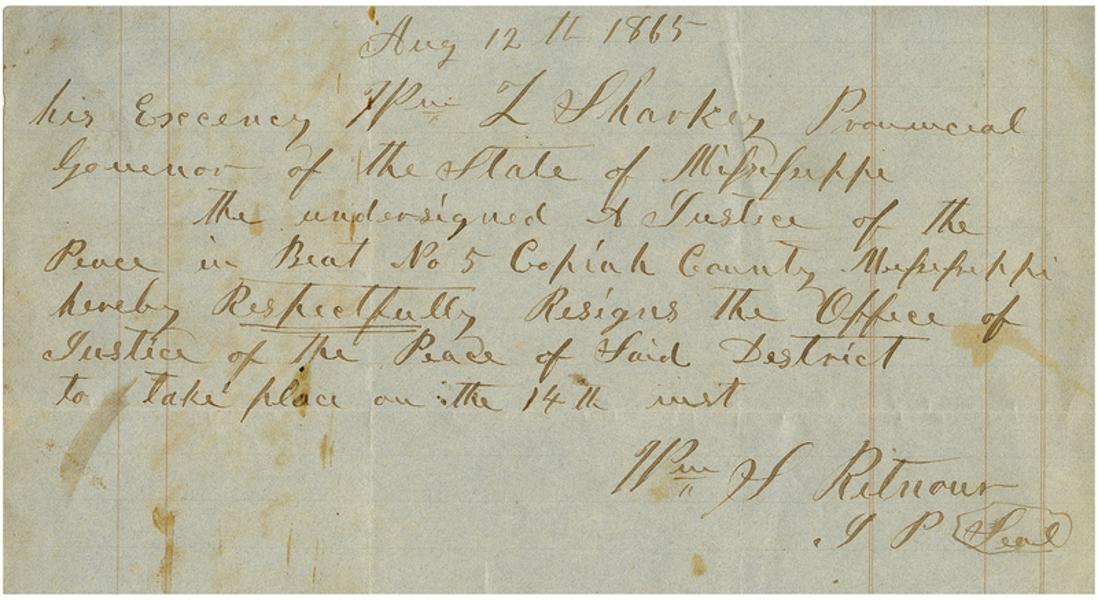 Aug 12th 1865
his Excecency Wm L Sharkey Provincial
Govenor of the State of Mississippi
the undersigned A Justice of the
Peace in Beat No 5 Copiah County Mississippi
hereby Respectfully Resigns the Office of
Justice of the Peace of Said District
to take place on the 14th inst
Wm H Ritnour
J P Seal